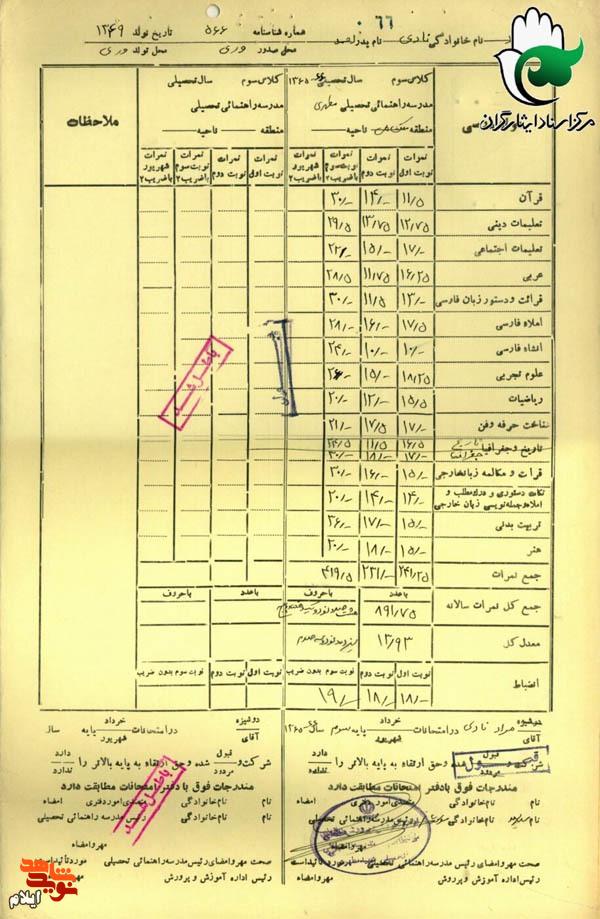 ۰۶۶
نام خانوادگی نادی نام پدر صد شماره شناسنامه ۵۶۶ تاریخ تولد ۱۳۴۹
محل صدور دری محل تولد دری
مرکز اسناد ایثارگران
کلاس سوم سال تحصیلی ۶۶-۱۳۶۵
مدرسه راهنمائی تحصیلی مطهری
منطقه ناحیه
نمرات نوبت اول
نمرات نوبت دوم
نمرات نوبت سوم با ضریب ۲
نمرات شهریور با ضریب ۲
کلاس سوم سال تحصیلی
مدرسه راهنمائی تحصیلی
منطقه ناحیه
نمرات نوبت اول
نمرات نوبت دوم
نمرات نوبت سوم با ضریب ۲
نمرات شهریور با ضریب ۲
ملاحظات
قرآن ۱۱/۵ ۱۴/- ۳۰/-
تعلیمات دینی ۱۲/۷۵ ۱۳/۷۵ ۲۹/۵
تعلیمات اجتماعی ۱۷/- ۱۵/-
عربی ۱۶/۲۵ ۱۱/۷۵ ۲۸/۵
قرائت و دستور زبان فارسی ۱۳/- ۱۱/۵ ۳۰/-
املاء فارسی ۱۷/۵ ۱۶/- ۲۸/-
انشاء فارسی ۱۰/- ۱۰/- ۲۴/-
علوم تجربی ۱۸/۲۵ ۱۵/- ۲۶/-
ریاضیات ۱۵/۵ ۱۲/- ۲۰/-
شناخت حرفه و فن ۱۷/- ۱۷/۵ ۲۱/-
تاریخ و جغرافیا تاریخ ۱۶/۵ ۱۱/۵ ۲۴/۵
جغرافیا ۱۷/- ۱۸/- ۳۰/-
قرات و مکالمه زبان خارجی ۱۵/- ۱۶/- ۳۰/-
نکات دستوری و درك مطلب و املاء و جمله نویسی زبان خارجی ۱۴/- ۱۴/- ۲۰/-
تربیت بدنی ۱۵/- ۱۷/- ۳۶/-
هنر ۱۵/- ۱۸/- ۲۰/-
جمع نمرات ۲۴۱/۲۵ ۲۳۱/- ۴۱۹/۵
باعدد باحروف باعدد باحروف
جمع کل نمرات سالانه ۸۹۱/۷۵
معدل کل ۱۳/۹۳
نوبت اول نوبت دوم نوبت سوم بدون ضریب نوبت اول نوبت دوم نوبت سوم بدون ضریب
انضباط ۱۸/- ۱۸/- ۱۹/-
باطل شد
دوشیزه آقای مراد نادی در امتحانات خرداد شهریور پایه سوم سال ۶۶-۱۳۶۵
شرکت و قبول مردود شده و حق ارتقاء به پایه بالاتر را دارد ندارد
قبول
مندرجات فوق با دفتر امتحانات مطابقت دارد
نام نام خانوادگی متصدی امور دفتری امضاء
نام نام خانوادگی رئیس مدرسه راهنمائی تحصیلی
مهر و امضاء
صحت مهر و امضای رئیس مدرسه راهنمائی تحصیلی مورد تأئید است
رئیس اداره آموزش و پرورش مهر و امضاء
دوشیزه آقای در امتحانات خرداد شهریور پایه سال
شرکت و قبول مردود شده و حق ارتقاء به پایه بالاتر را دارد ندارد
باطل شد
مندرجات فوق با دفتر امتحانات مطابقت دارد
نام نام خانوادگی متصدی امور دفتری امضاء
نام نام خانوادگی رئیس مدرسه راهنمائی تحصیلی
مهر و امضاء
صحت مهر و امضای رئیس مدرسه راهنمائی تحصیلی مورد تأئید است
رئیس اداره آموزش و پرورش مهر و امضاء
نوید شاهد
ایلام